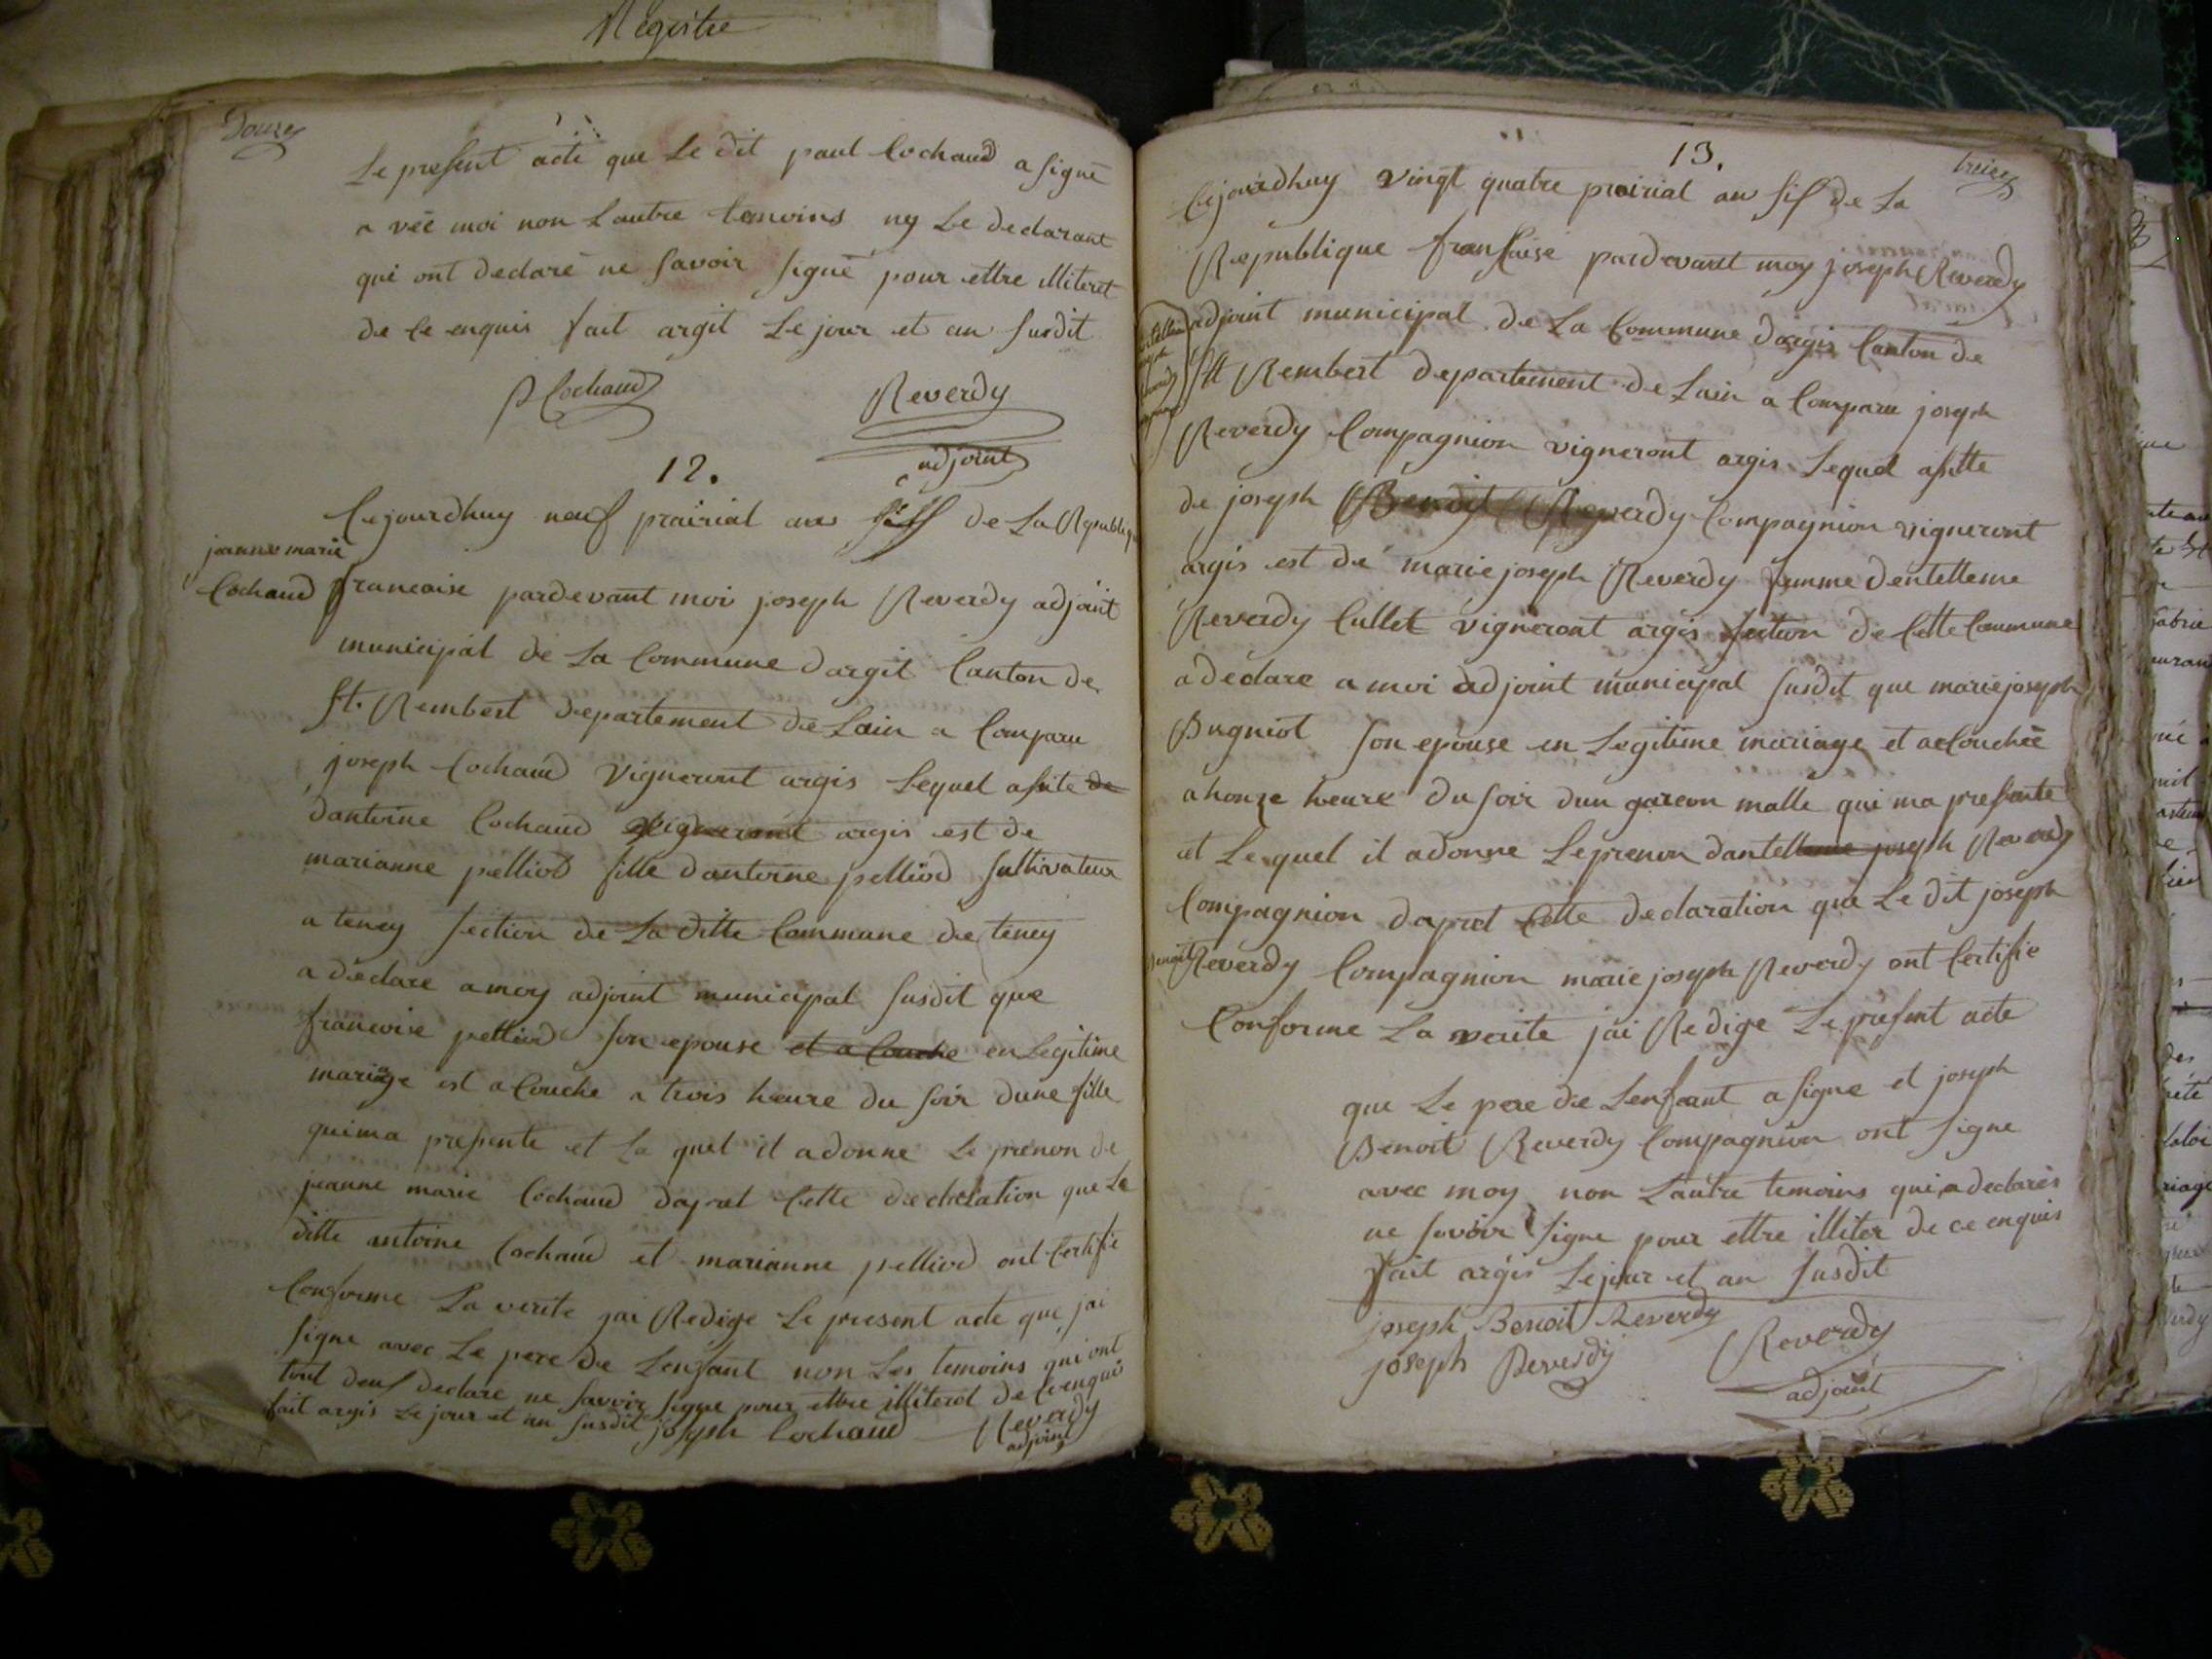 Registre
Douze
Le present acte que Le dit paul Cochaud a signé
avéc moi non Lautre temoins ny Le declarant
qui ont declaré ne savoir signé pour ettre illiteret
de Ce enquis fait argit Le jour et an susdit
P Cochaud Reverdy
adjoint
12.
Cejourdhuy neuf prairial an sis de La Republique
jeanne marie
Cochaud
francaise pardevant moi joseph Reverdy adjoint
municipal de La Commune dargit Canton de
st. Rembert departement de Lain a Comparu
joseph Cochaud Vigneront argis Lequel asite de
dantoine Cochaud vigneront argis est de
marianne pelliod fille dantoine pelliod Cultivateur
a teney section de La ditte Commune de teney
a declare a moy adjoint municipal susdit que
francoise pelliod son epouse et a Couche en Legitime
mariage est a Couche a trois heure du soir dune fille
quima presente et La quel il adonne Le prenon de
jeanne marie Cochaud daprét Cette declaration que Le
ditte antoine Cochaud et marianne pelliod ont Certifie
Conforme La verite jai Redige Le present acte que jai
signe avec Le pere de Lenfant non Les temoins qui ont
tout deuf declare ne savoir signe pour ettre illiterét de Ce enquis
fait argis Le jour et an susdit joseph Cochaud Reverdy
adjoint
13.
treize
Cejourdhuy vingt quatre prairial an sis de La
Republique fransaise pardevant moy joseph Reverdy
adjoint municipal de La Commune dargis Canton de
st Rembert departement de Lain a Comparu joseph
Reverdy Compagnion vigneront argis Lequel asitte
de joseph Benoit Reverdy Compagnion vigneront
argis est de marie joseph Reverdy femme dentelleme
Reverdy Cullet vigneront argis section de Cette Commune
a declare a moi adjoint municipal susdit que marie joseph
Bugniot son epouse en Legitime mariage et acouchée
a honze heure du soir dun garcon malle qui ma presante
et Lequel il adonne Leprenon dantelleme joseph Reverdy
Compagnion daprét Cette declaration que Le dit joseph
benoit Reverdy Compagnion marie joseph Reverdy ont Certifie
Conforme La verite jai Redige Le présent acte
que Le pere de Lenfeant a signe et joseph
Benoit Reverdy Compagnion ont signe
avec moy non Lautre temoins qui a declares
ne savoir signe pour ettre illiter de ce enquis
fait argis Le jour et an susdit
joseph Benoit Reverdy
joseph Reverdy Reverdy
adjoint